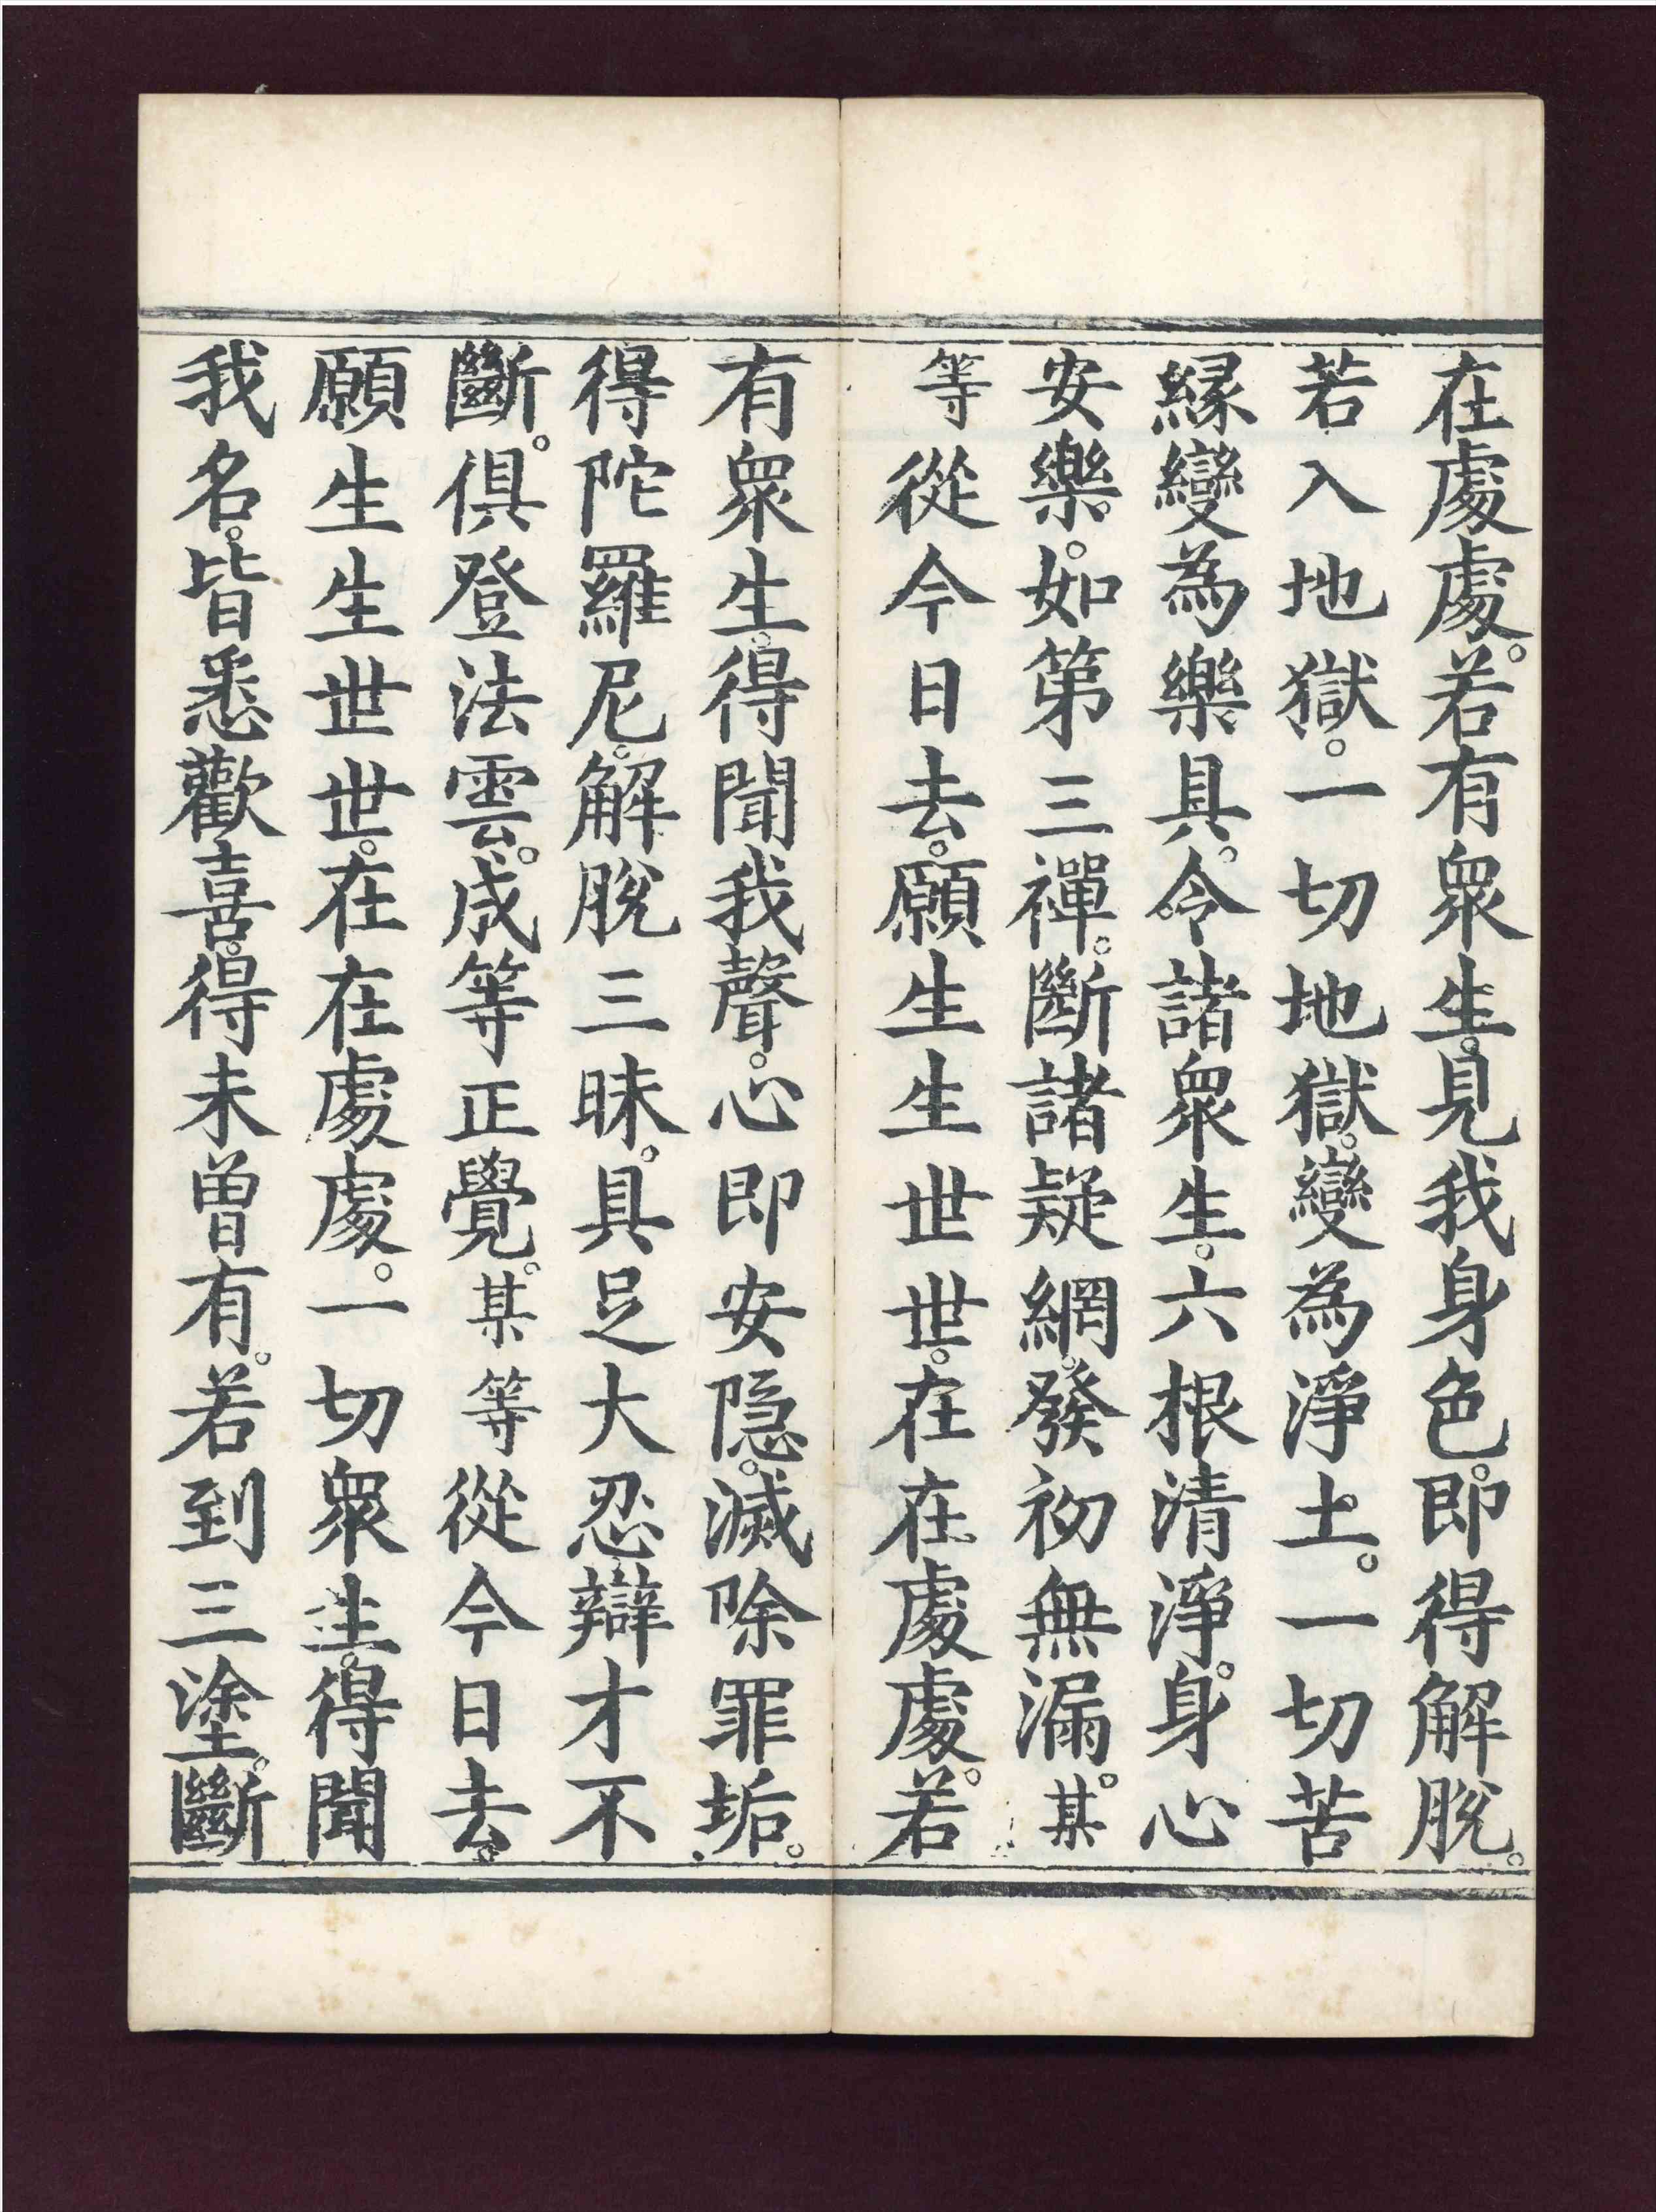 在處處。若有衆生。見我身色。即得解脫。
若入地獄。一切地獄。變為淨土。一切苦
緣變為樂具。令諸衆生。六根清淨。身心
安樂。如第三禪。斷諸疑網。發初無漏。某
等從今日去。願生生世世。在在處處。若
有衆生。得聞我聲。心即安隱。滅除罪垢。
得陀羅尼。解脫三昧。具足大忍辯才不
斷。俱登法雲。成等正覺。某等從今日去。
願生生世世。在在處處。一切衆生。得聞
我名。皆悉歡喜。得未曾有。若到三塗。斷